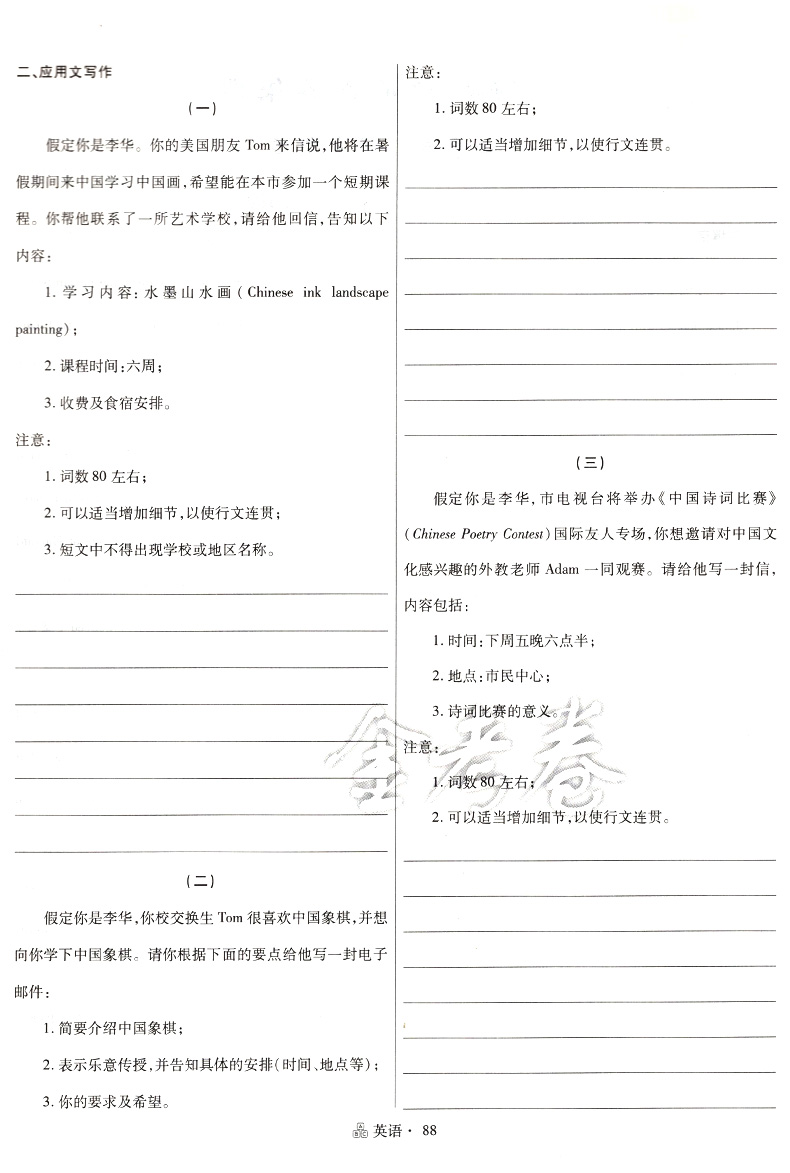 二、应用文写作
(一)
假定你是李华。你的美国朋友 Tom 来信说,他将在暑
假期间来中国学习中国画,希望能在本市参加一个短期课
程。你帮他联系了一所艺术学校,请给他回信,告知以下
内容:
1. 学习内容:水墨山水画(Chinese ink landscape
painting);
2. 课程时间:六周;
3. 收费及食宿安排。
注意:
1. 词数 80 左右;
2. 可以适当增加细节,以使行文连贯;
3. 短文中不得出现学校或地区名称。
(二)
假定你是李华,你校交换生 Tom 很喜欢中国象棋,并想
向你学下中国象棋。请你根据下面的要点给他写一封电子
邮件:
1. 简要介绍中国象棋;
2. 表示乐意传授,并告知具体的安排(时间、地点等);
3. 你的要求及希望。
注意:
1. 词数 80 左右;
2. 可以适当增加细节,以使行文连贯。
(三)
假定你是李华,市电视台将举办《中国诗词比赛》
(Chinese Poetry Contest)国际友人专场,你想邀请对中国文
化感兴趣的外教老师 Adam 一同观赛。请给他写一封信,
内容包括:
1. 时间:下周五晚六点半;
2. 地点:市民中心;
3. 诗词比赛的意义。
注意:
1. 词数 80 左右;
2. 可以适当增加细节,以使行文连贯。
金考卷
英语· 88